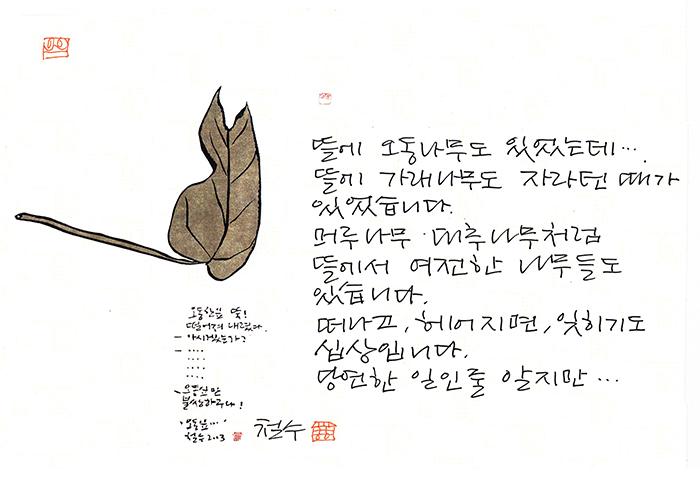 뜰에 오동나무도 있었는데…
뜰에 가래나무도 자라던 때가
있었습니다.
머루나무·대추나무처럼
뜰에서 여전한 나무들도
있습니다.
떠나고, 헤어지면, 잊히기도
쉽상입니다.
당연한 일인줄 알지만…
오동잎 뚝!
떨어져 내렸다.
- 아시겠는가?
- ....
....
....
....
- 오동잎만
불쌍하구나!
오동잎…
철수 2003
철수